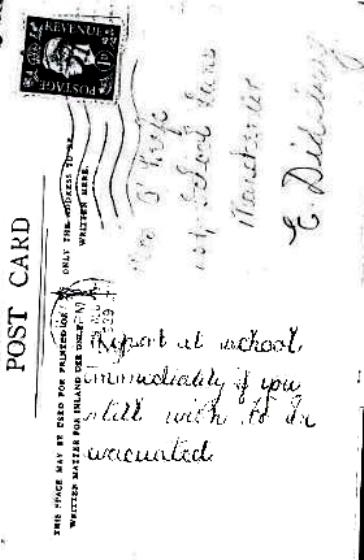 REVENUE
POSTAGE
POST CARD
THIS SPACE MAY BE USED FOR PRINTED OR
WRITTEN MATTER FOR INLAND USE ONLY.
ONLY THE ADDRESS TO BE
WRITTEN HERE.
School Lane
Manchester
E. Didsbury
Report at school
immediately if you
still wish to be
evacuated